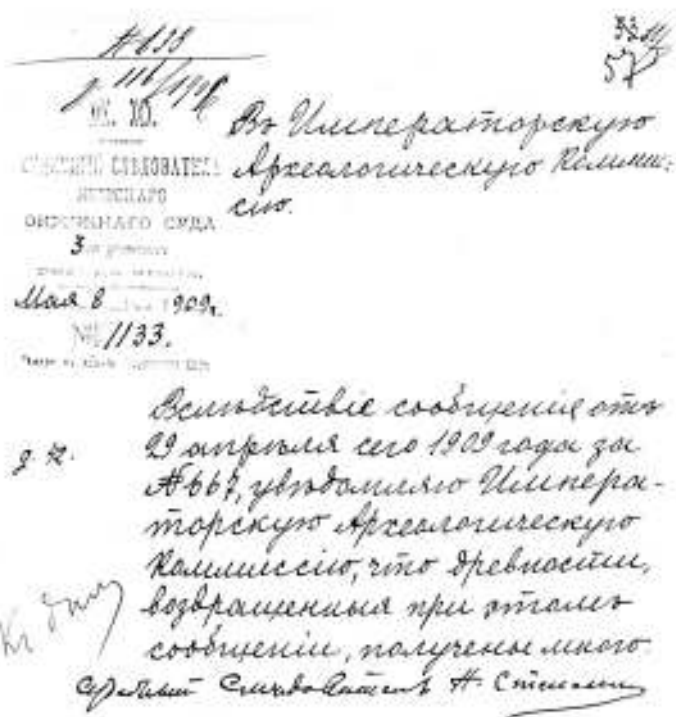 № 133
33
57
М. Ю.
ОКРУЖНАГО СУДА
3
Мая 8 1909 г.
№ 1133.
Въ Императорскую
Археологическую Коммис-
сію.
Вслѣдствіе сообщенія отъ
29 апрѣля сего 1909 года за
№ 667, увѣдомляю Импера-
торскую Археологическую
Коммиссію, что древности,
возвращенныя при этомъ
сообщеніи, получены мною.
Судебный Слѣдователь Н.